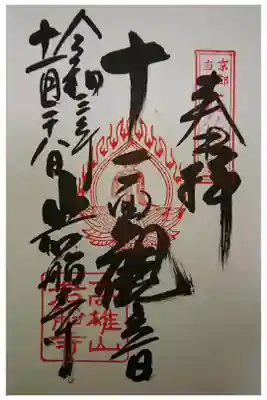 奉拝
十一面観音
令和三年
十一月二十八日
岩船寺
京都
高雄山
岩船寺